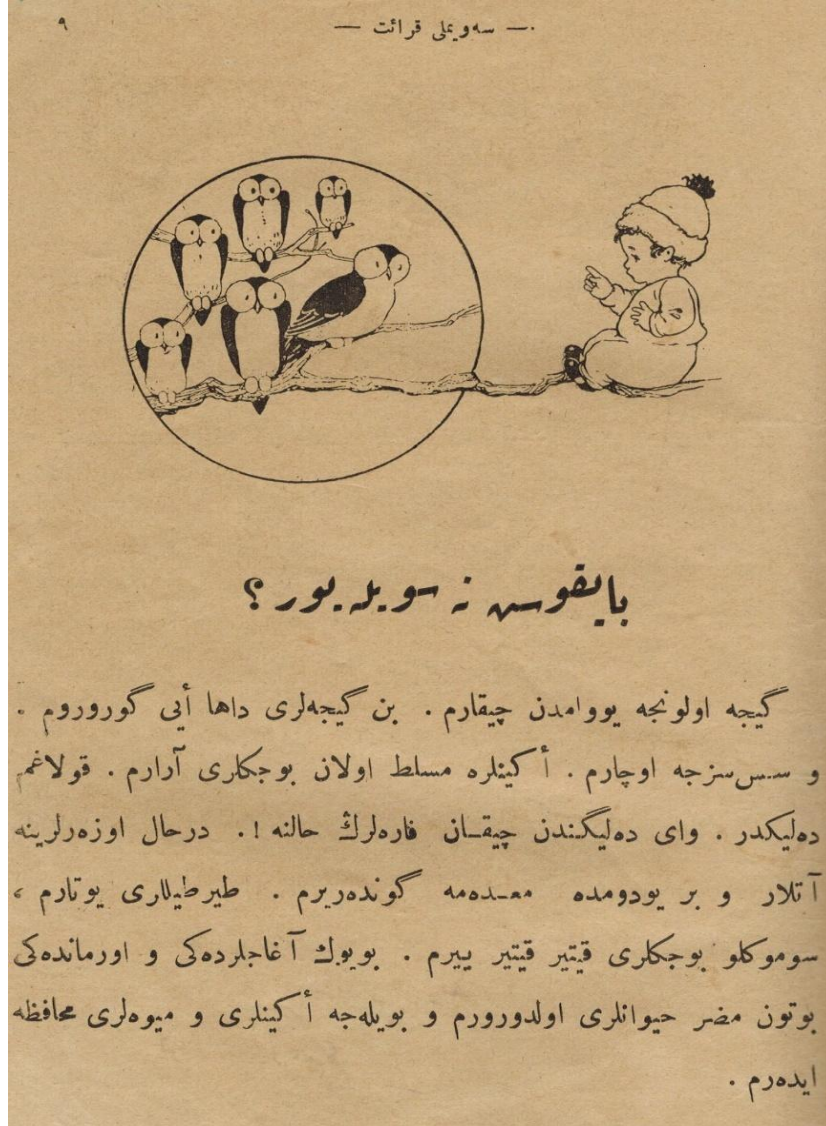 — سه‌ویملی قرائت —
٩
بایقوش نه سویله‌یور ؟
گیجه اولونجه یووامدن چیقارم . بن گیجه‌لری داها أیی گورورم .
و سس‌سزجه اوچارم . أکینلره مسلط اولان بوجکلری آرارم . قولاغم
ده‌لیکدر . وای ده‌لیگندن چیقان فاره‌لرڭ حالنه !. درحال اوزه‌رلرینه
آتلار و بر یودومده معده‌مه گونده‌ریرم . طیرطیللری یوتارم ،
سوموکلو بوجکلری قیتیر قیتیر ییرم . بویوك آغاجلرده‌کی و اورمانده‌کی
بوتون مضر حیوانلری اولدورورم و بویله‌جه أکینلری و میوه‌لری محافظه
ایده‌رم .